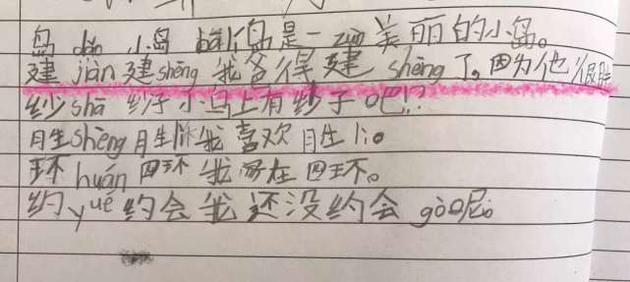 岛 dǎo 小岛 bālí岛是一 zuò 美丽的小岛。
建 jiàn 建shēng 我各得建 shēng 了。因为他很
纱 shā 纱子 小鸟上有纱子吧!?
胜 shèng 胜lì 我喜欢胜 lì。
环 huán 四环 我家在四环。
约 yuē 约会 我还没约会 gò 呢。